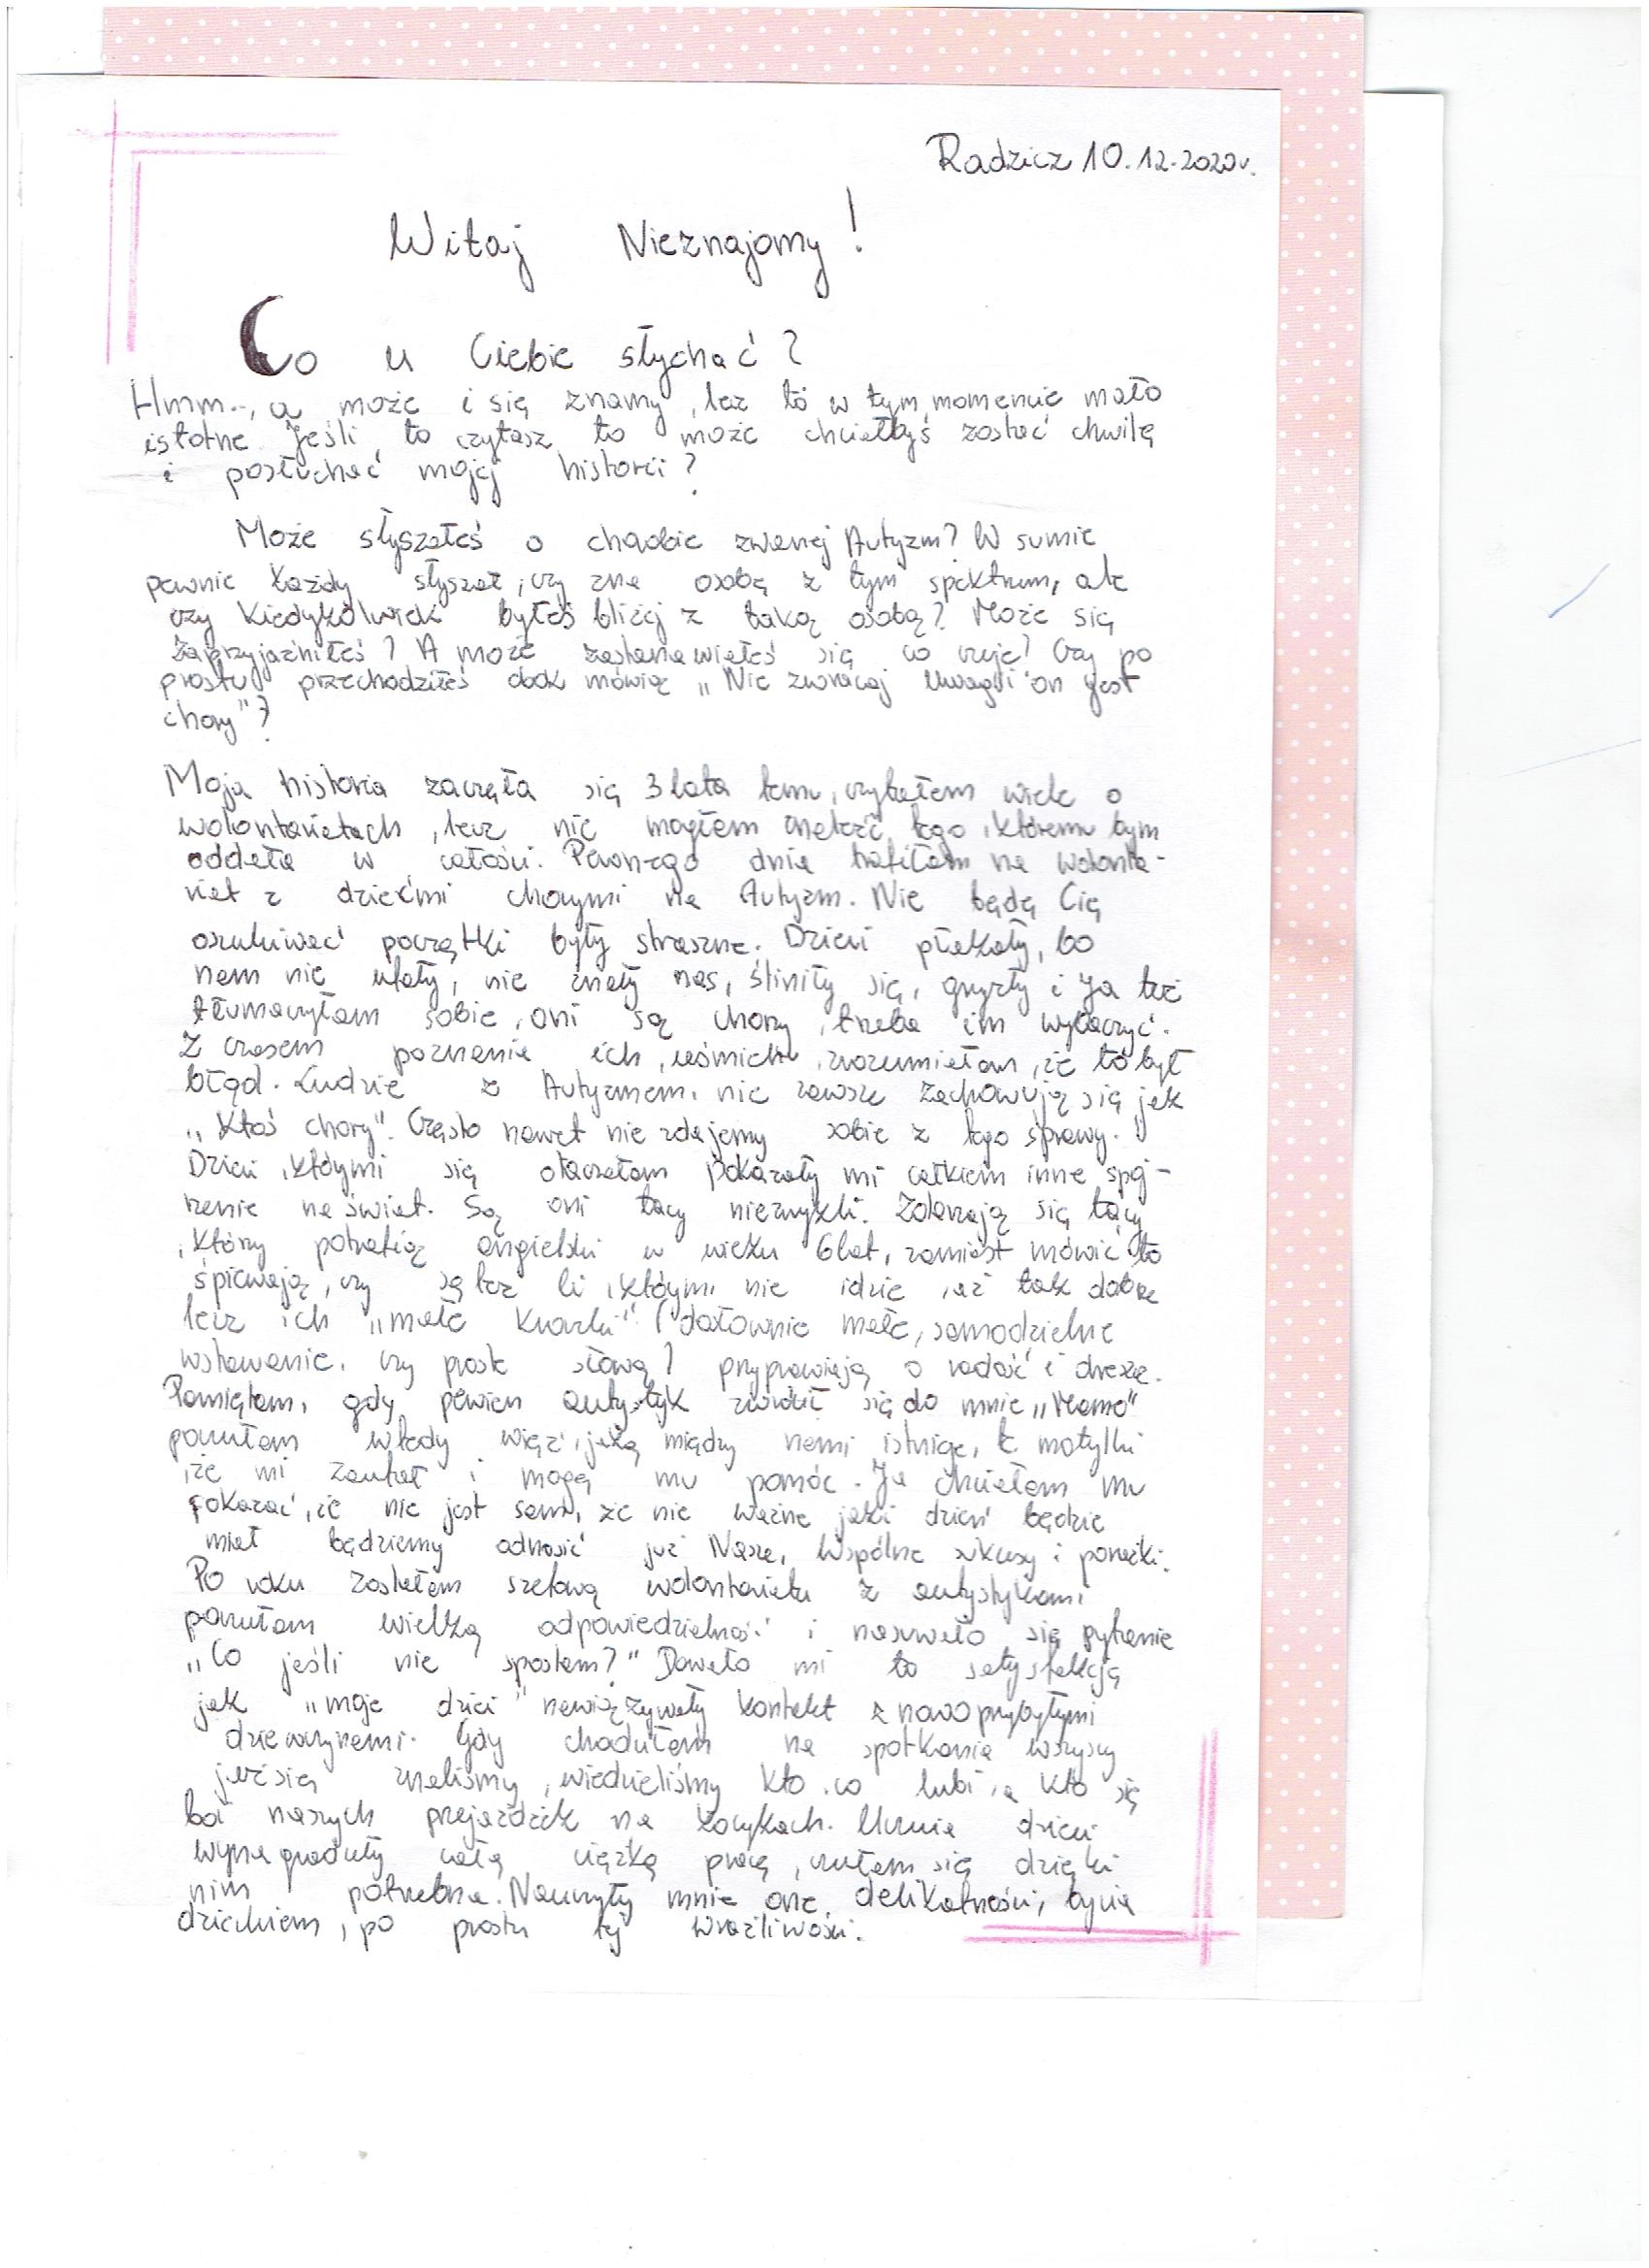 Radzicz 10.12.2020r.
Witaj Nieznajomy!
Co u Ciebie słychać?
Hmm.., a może i się znamy, lecz to w tym momencie mało
istotne. Jeśli to czytasz to może chciałbyś zostać chwilę
i posłuchać mojej historii?
Może słyszałeś o chorobie zwanej Autyzm? W sumie
pewnie każdy słyszał, czy zna osobę z tym spektrum, ale
czy kiedykolwiek byłeś bliżej z taką osobą? Może się
zaprzyjaźniłeś? A może zastanawiałeś się co czuje? Czy po
prostu przechodziłeś obok mówiąc „Nie zwracaj uwagi on jest
chory"?
Moja historia zaczęła się 3 lata temu, czytałam wiele o
wolontariatach, lecz nie mogłam znaleźć tego, któremu bym
oddała w całości. Pewnego dnia trafiłam na wolonta-
riat z dziećmi chorymi na Autyzm. Nie będę Cię
oszukiwać początki były straszne. Dzieci płakały, bo
nam nie ufały, nie znały nas, śliniły się, gryzły i Ja też
tłumaczyłam sobie, oni są chorzy, trzeba im wybaczyć.
Z czasem poznania ich, uśmiechu, zrozumiałam, że to był
błąd. Ludzie z Autyzmem, nie zawsze zachowują się jak
„ktoś chory". Często nawet nie zdajemy sobie z tego sprawy.
Dzieci, którymi się otaczałam pokazały mi całkiem inne spoj-
rzenie na świat. Są oni tacy niezwykli. Zdarzają się tacy
, którzy potrafią angielski w wieku 6 lat, zamiast mówić to
śpiewają, czy są też Ci, którym nie idzie, aż tak dobrze
lecz ich „małe kroczki" (dosłownie małe, samodzielne
wstawanie, czy proste słowa) przyprawiają o radość i dreszcze.
Pamiętam, gdy pewien autystyk zwrócił się do mnie „Mamo"
poczułam wtedy więź, jaką między nami istnieje, te motylki
, że mi zaufał i mogę mu pomóc. Ja chciałam mu
pokazać, że nie jest sam, że nie ważne jaki dzień będzie
miał będziemy odnosić już Nasze, Wspólne sukcesy i porażki.
Po roku zostałam szefową wolontariatu z autystykami
poczułam wielką odpowiedzialność i nasuwało się pytanie
„Co jeśli nie sprostam?" Dawało mi to satysfakcję
jak „moje dzieci" nawiązywały kontakt z nowo przybyłymi
dziewczynami. Gdy chodziłam na spotkania wszyscy
już się znaliśmy, wiedzieliśmy kto co lubi, a kto się
boi naszych przejażdżek na kocykach. Uczucia dzieci
wynagrodziły całą ciężką pracę, czułam się dzięki
nim potrzebna. Nauczyły mnie one delikatności, bycia
dzieckiem, po prostu tej wrażliwości.